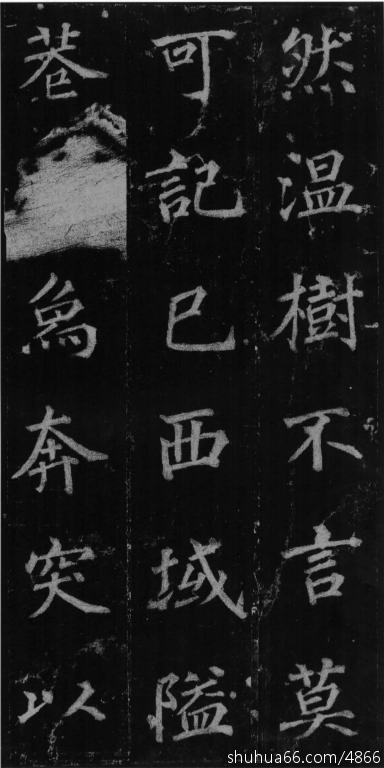 然温樹不言莫
可記已西域隘
巷象奔突以
shuhua66.com/4866